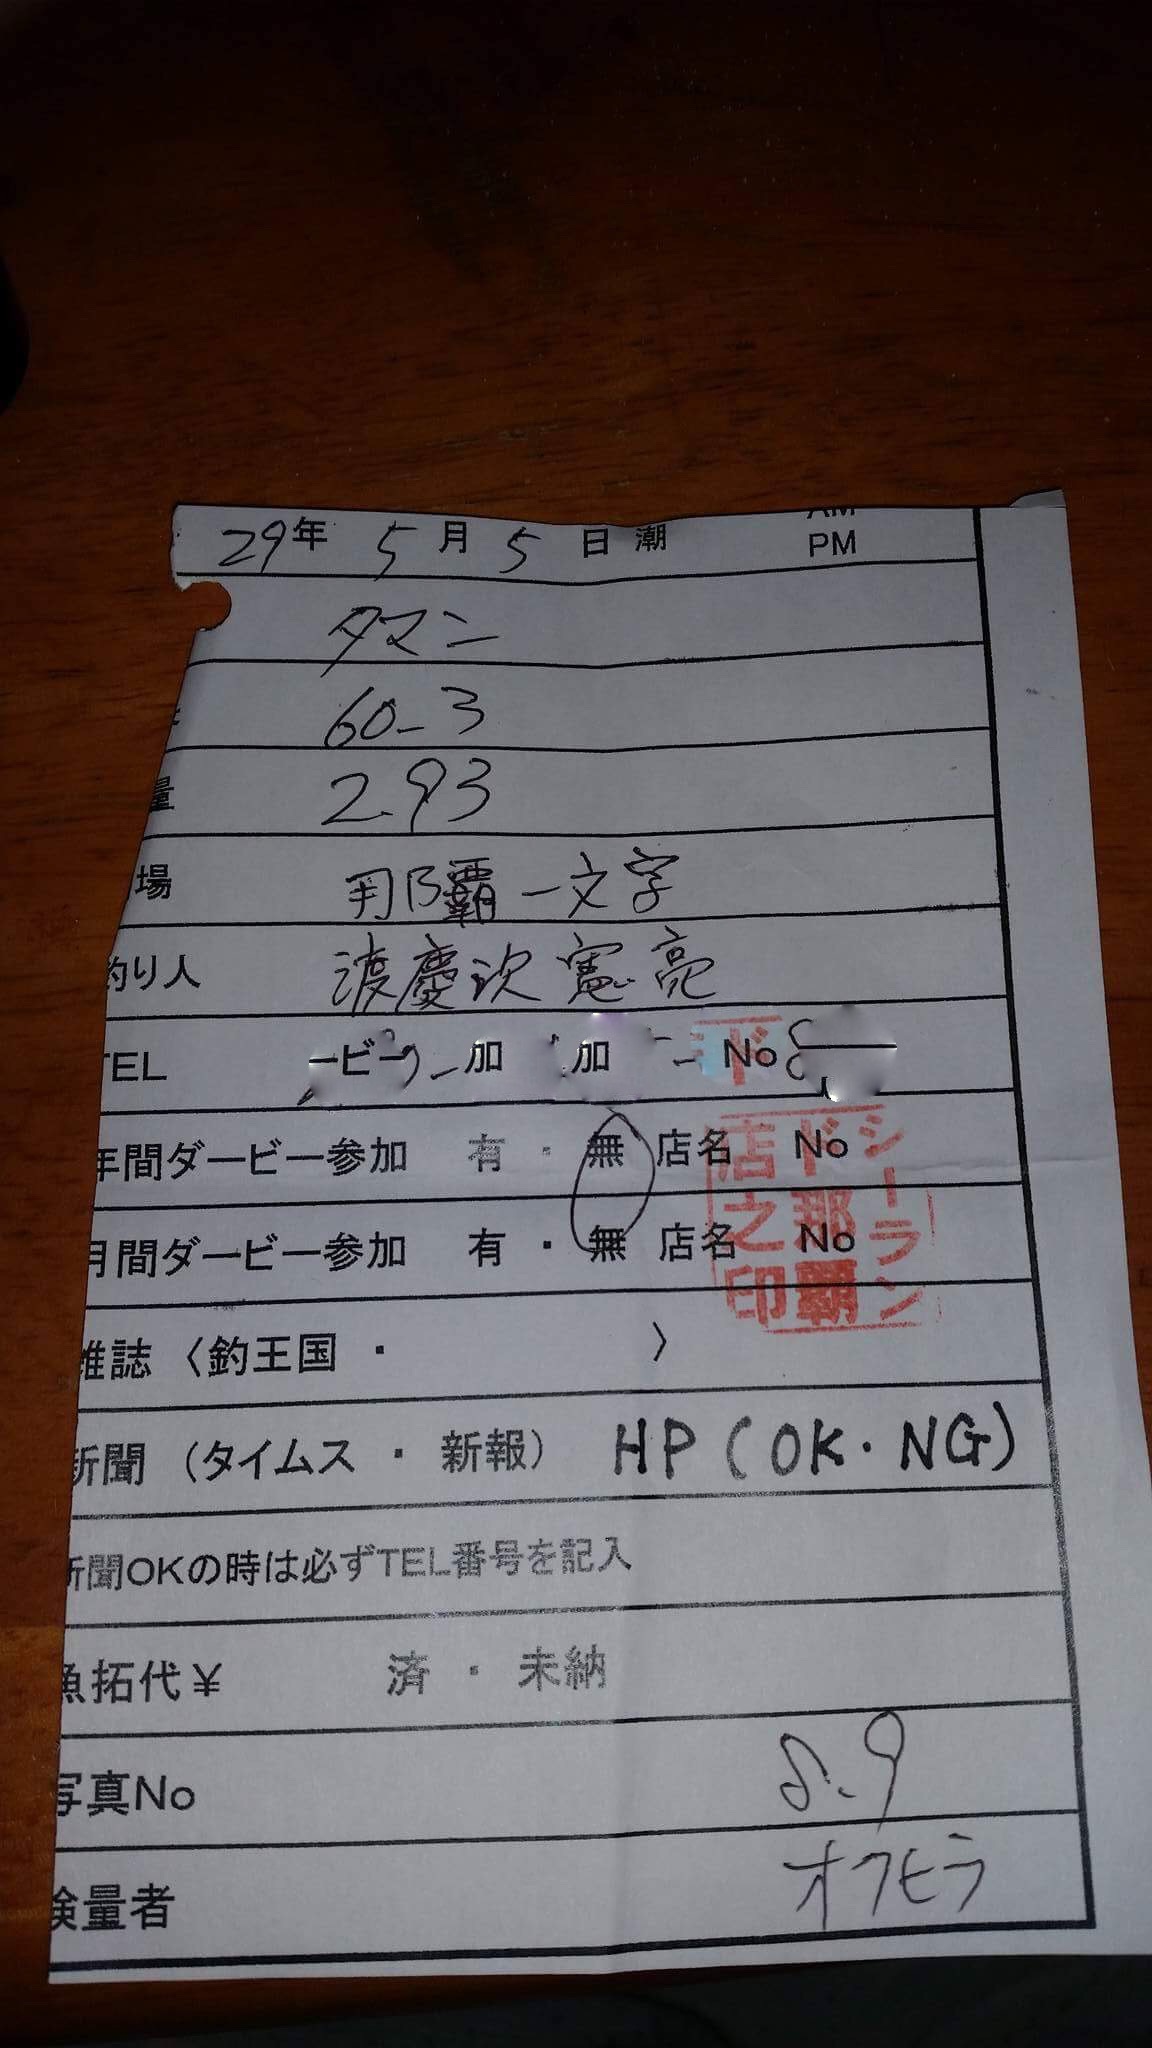 29年 5月 5日 潮 AM
PM
タマン
60-3
量 2.93
場 那覇一文字
釣り人 渡慶次憲亮
TEL
年間ダービー参加 有・無 店名 No
月間ダービー参加 有・無 店名 No
シーランド那覇店之印
雑誌〈釣王国・ 〉
新聞（タイムス・新報） HP (OK・NG)
新聞OKの時は必ずTEL番号を記入
魚拓代¥ 済・未納
写真No 8.9
検量者 オクヒラ